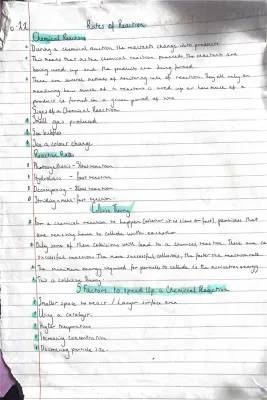 Rates of Reaction
Chemical Reactions
During a chemical reaction the reactants change into products
This means that as the chemical reaction proceeds the reactants are
being used up and the products are being formed
There are several methods of monitoring rate of reaction. They all rely on
measuring how much of a reactant is used up or how much of a
product is formed in a given period of time
Signs of a Chemical Reaction
Smell gas produced
See bubbles
See a colour change
Reaction Rates
Photosynthesis - Slow reaction
- fast reaction
Decomposing - Slow reaction
- fast reaction
Collision Theory
For a chemical reaction to happen (whether it is slow or fast), particles that
are reacting have to collide with each other
Only some of these collisions will lead to a chemical reaction. These are
successful reactions. The more successful collisions, the faster the reaction rate
The minimum energy required for particles to collide is the activation energy
This is collision theory
5 Factors to speed up a Chemical Reaction
Smaller space to react / Larger surface area
Using a catalyst
Higher temperature
Increasing concentration
Decreasing particle size